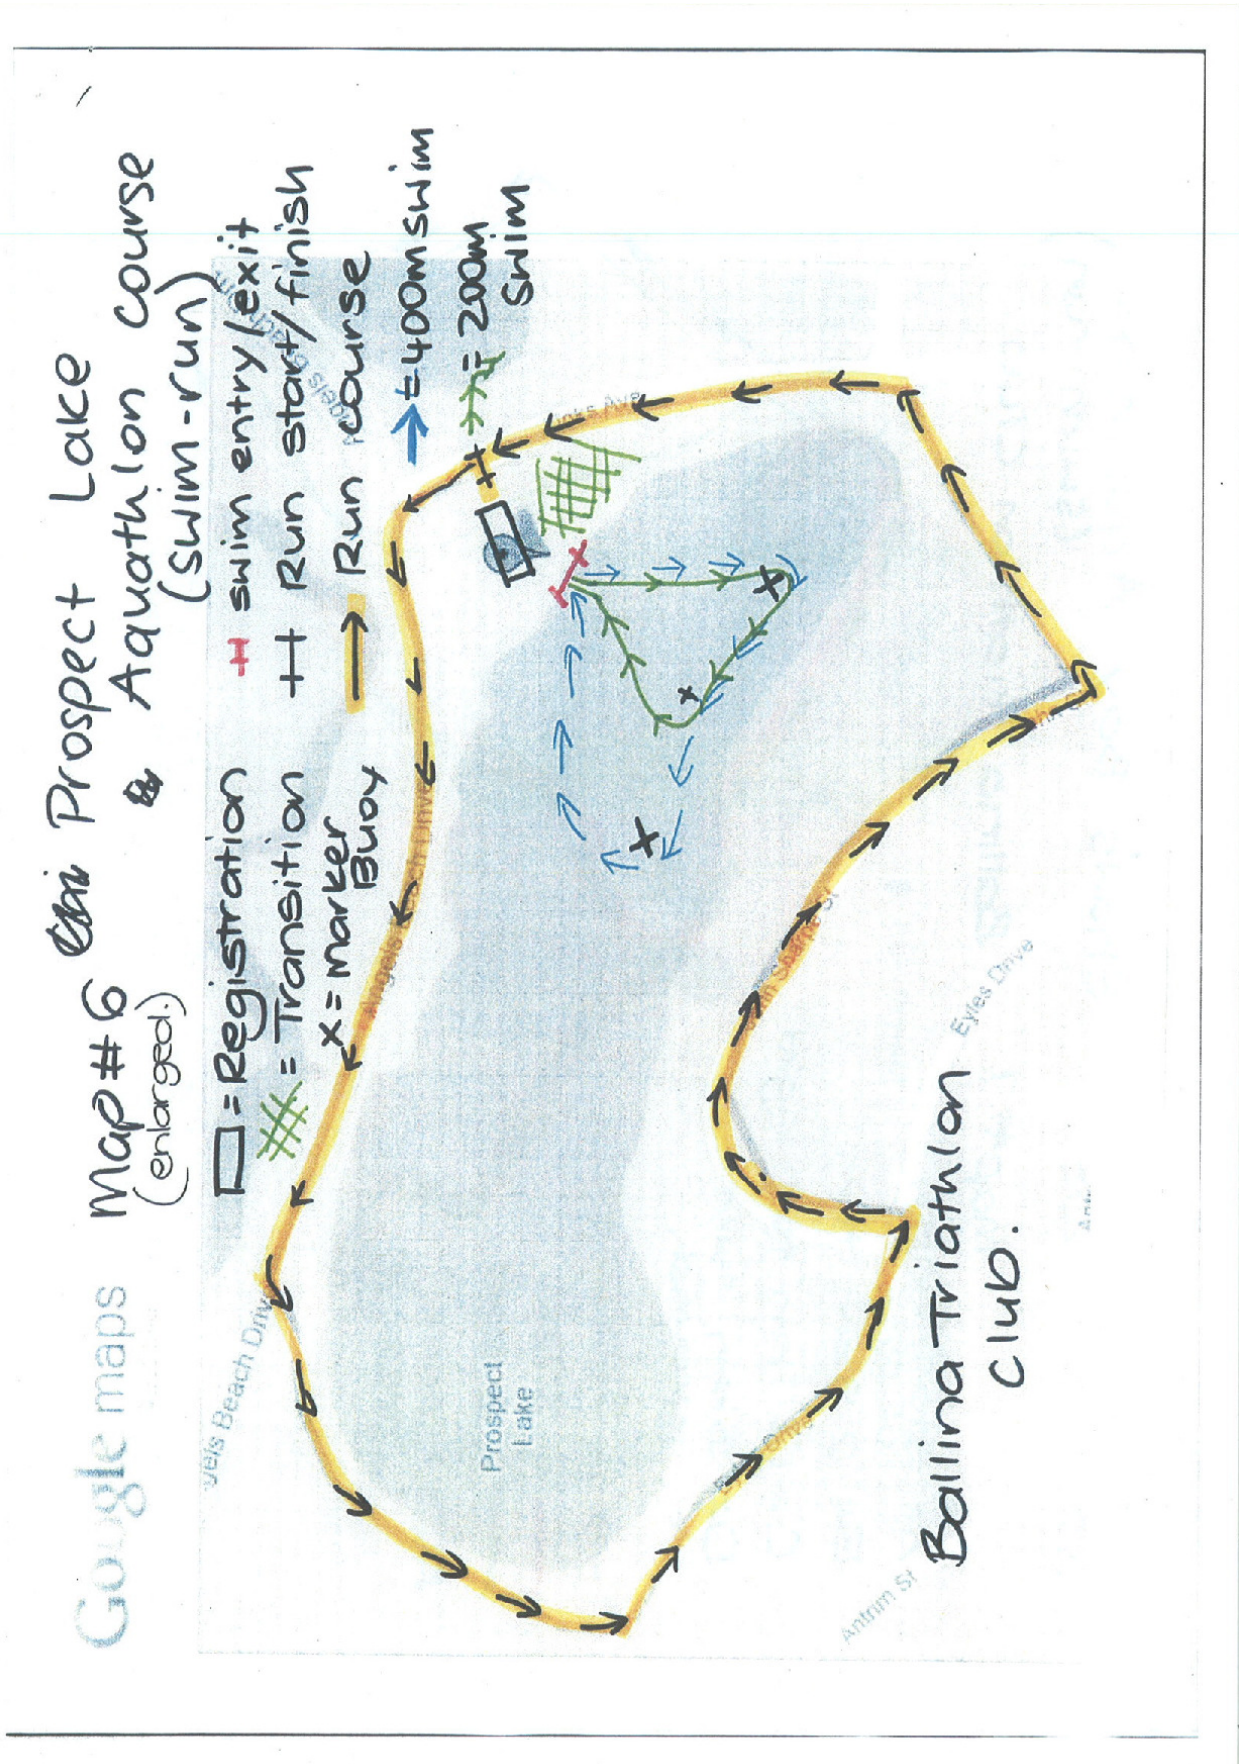 Google maps
Map #6 Prospect Lake
(enlarged.)
& Aquathlon course
(swim-run)
= Registration
= Transition
x = marker
Buoy
swim entry/exit
Run start/finish
Run course
= 400m swim
= 200m
swim
Angels Beach Drive
Prospect
Lake
Eyles Drive
Antrim St
Ballina Triathlon
Club.